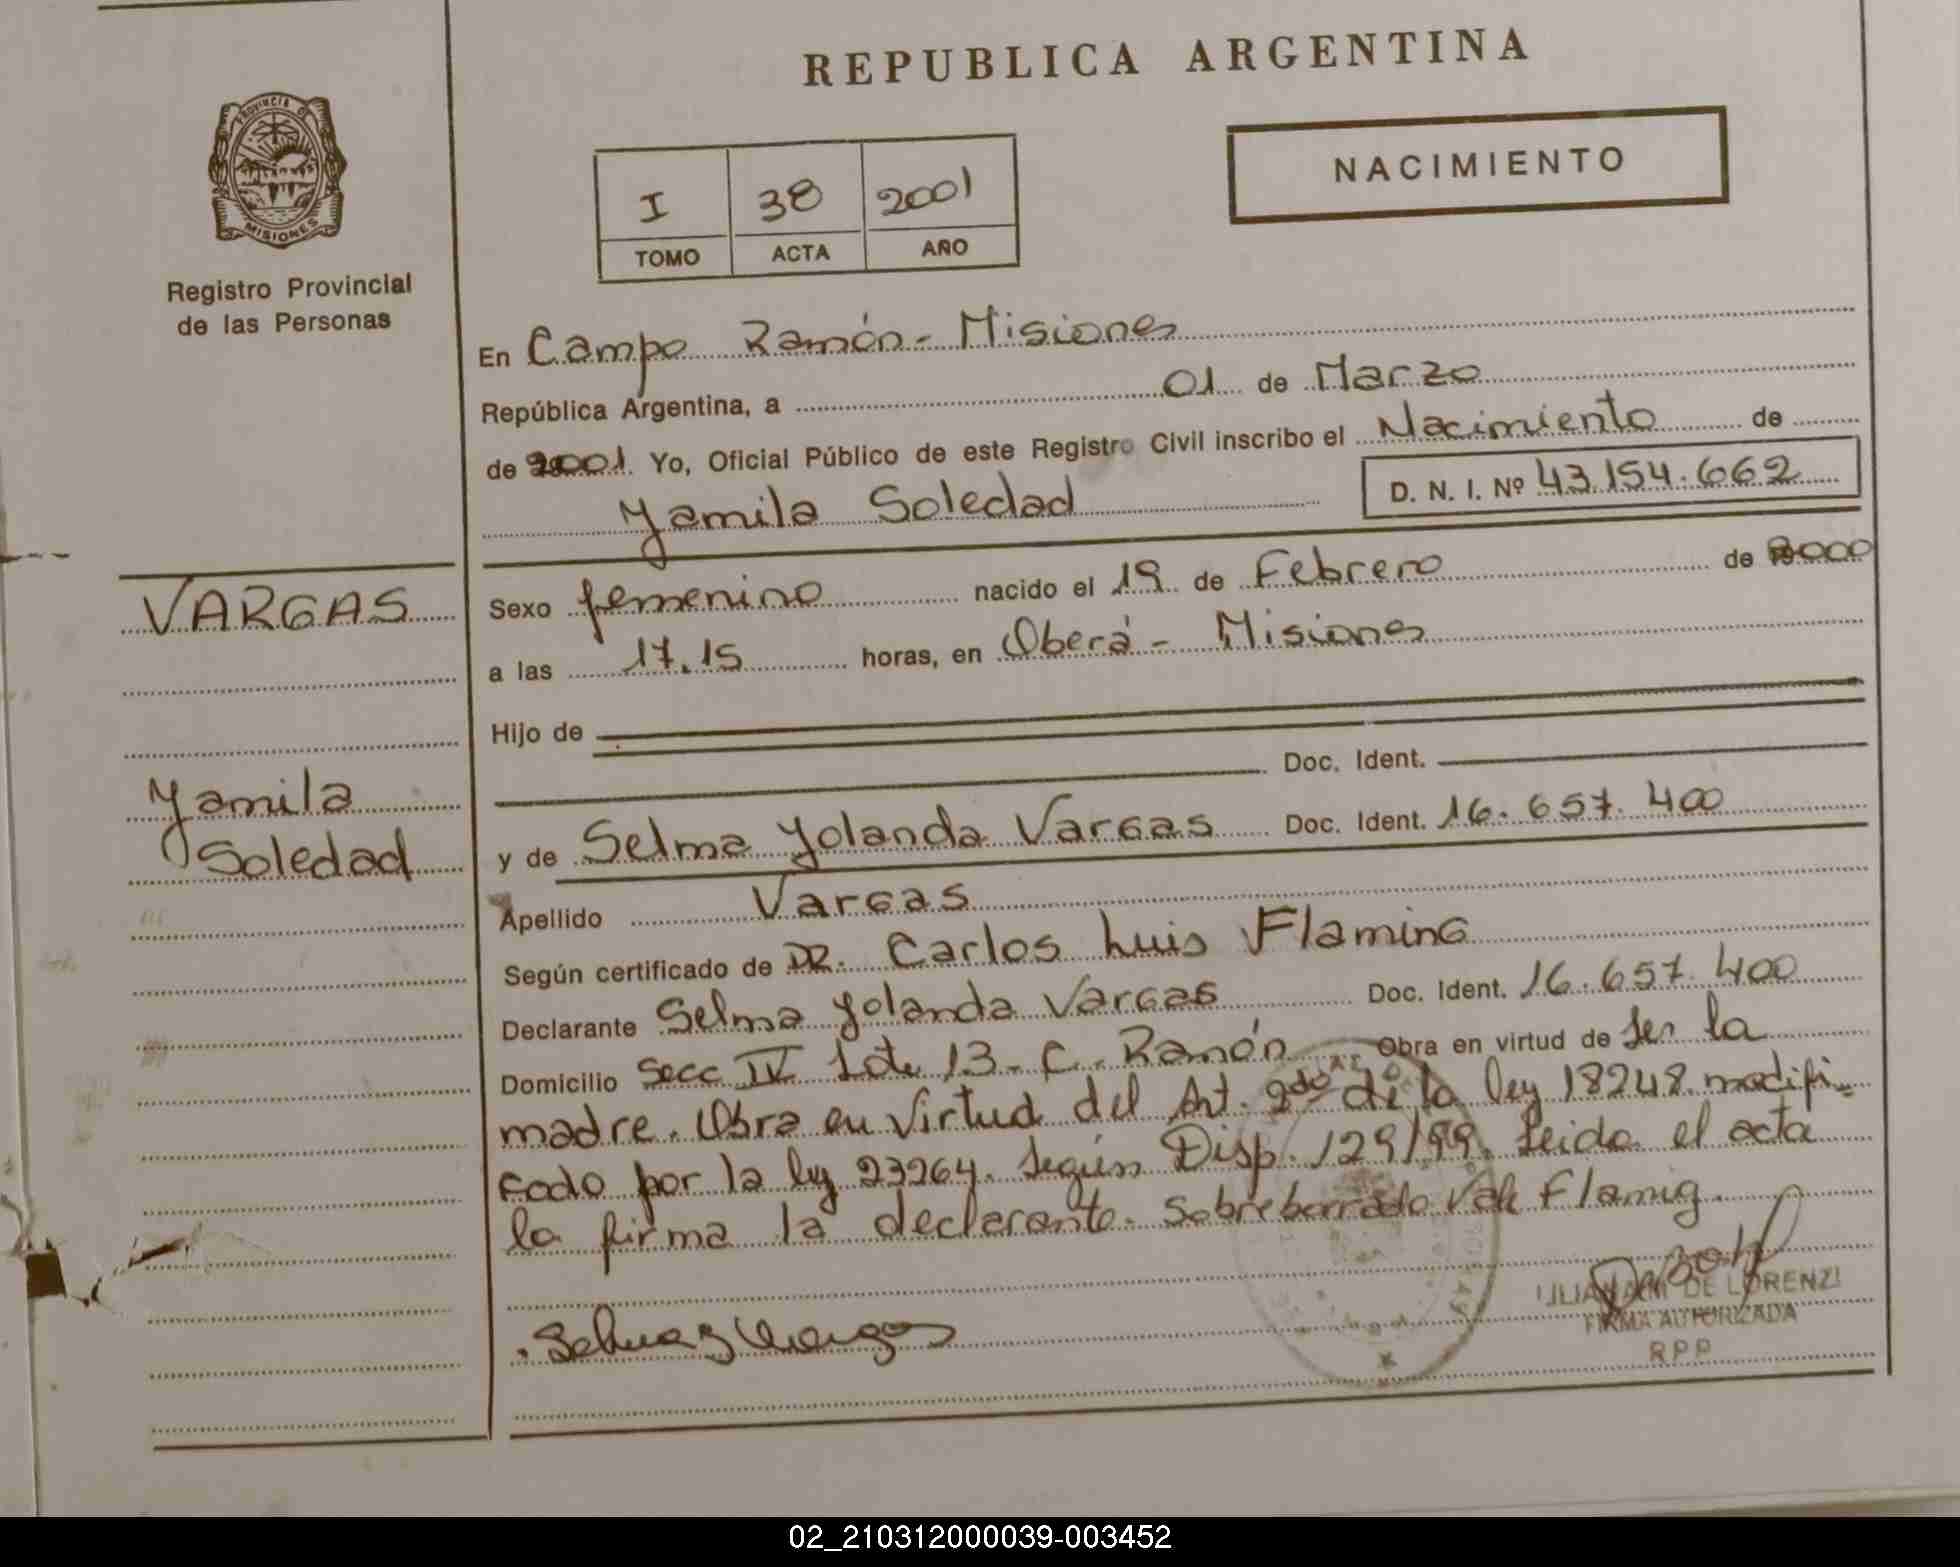 REPUBLICA ARGENTINA
PROVINCIA DE
MISIONES
Registro Provincial
de las Personas
I 38 2001
TOMO ACTA AÑO
NACIMIENTO
En Campo Ramón - Misiones
República Argentina, a 01 de Marzo
de 2001. Yo, Oficial Público de este Registro Civil inscribo el Nacimiento de
Yamila Soledad D. N. I. Nº 43.154.662
VARGAS
Yamila
Soledad
Sexo femenino nacido el 19 de Febrero de 2000
a las 17.15 horas, en Oberá - Misiones
Hijo de
Doc. Ident.
y de Selma Yolanda Vargas Doc. Ident. 16.657.400
Apellido Vargas
Según certificado de DR. Carlos Luis Flaming
Declarante Selma Yolanda Vargas Doc. Ident. 16.657.400
Domicilio Secc IV Lote 13 - C. Ramón Obra en virtud de ser la
madre. Obra en virtud del Art. 2do de la ley 18248 modifi-
cado por la ley 23264. Según Disp. 129/99. Leida el acta
la firma la declarante. Sobreborrado Vale Flamig.
LILIANA M. DE LORENZI
FIRMA AUTORIZADA
R P P
02_210312000039-003452